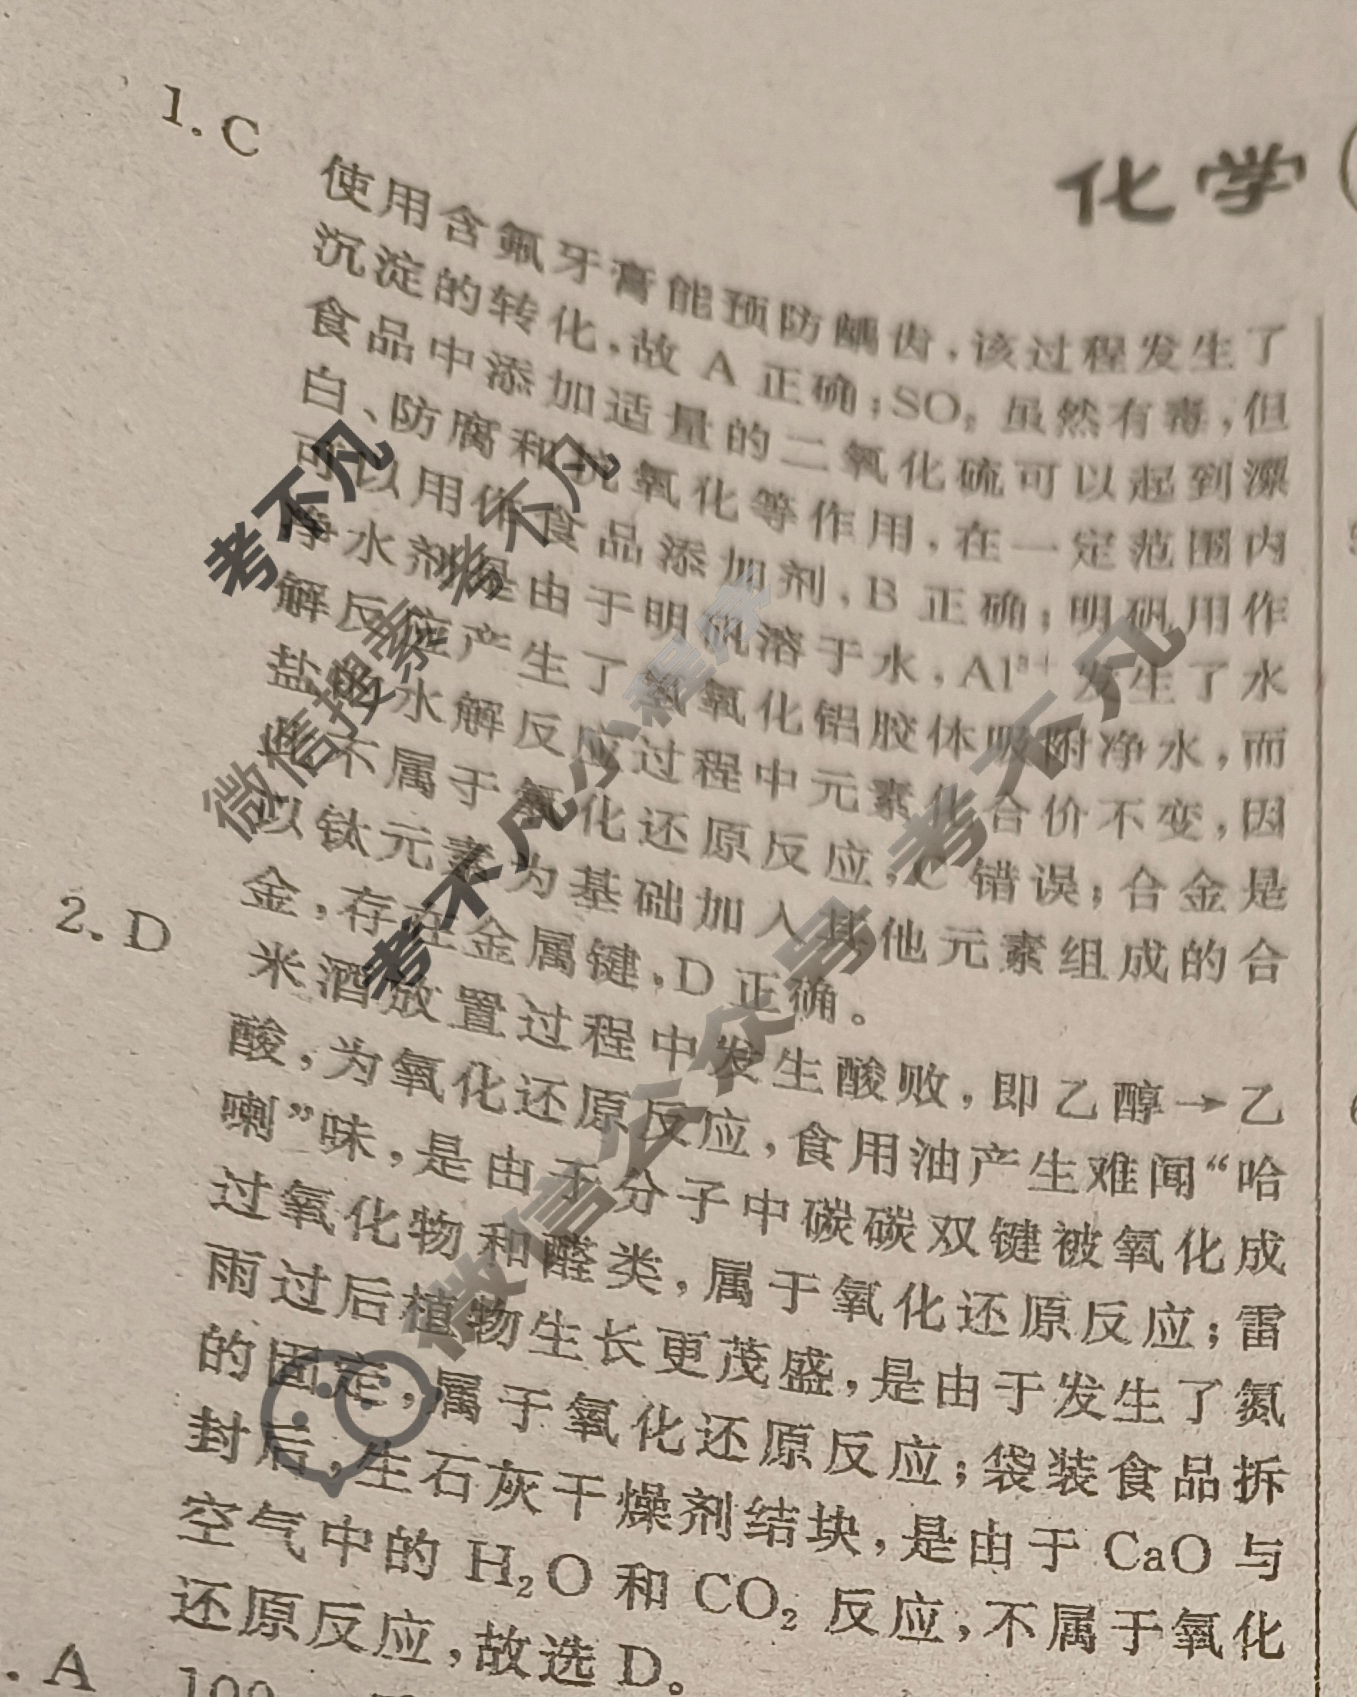 化学
1. C 使用含氟牙膏能预防龋齿,该过程发生了
沉淀的转化,故 A 正确;SO₂ 虽然有毒,但
食品中添加适量的二氧化硫可以起到漂
白、防腐和抗氧化等作用,在一定范围内
可以用作食品添加剂,B 正确;明矾用作
净水剂是由于明矾溶于水,Al³⁺ 发生了水
解反应产生了氢氧化铝胶体吸附净水,而
盐的水解反应过程中元素化合价不变,因
此不属于氧化还原反应,C 错误;合金是
以钛元素为基础加入其他元素组成的合
金,存在金属键,D 正确。
2. D 米酒放置过程中发生酸败,即乙醇→乙
酸,为氧化还原反应,食用油产生难闻“哈
喇”味,是由于分子中碳碳双键被氧化成
过氧化物和醛类,属于氧化还原反应;雷
雨过后植物生长更茂盛,是由于发生了氮
的固定,属于氧化还原反应;袋装食品拆
封后,生石灰干燥剂结块,是由于 CaO 与
空气中的 H₂O 和 CO₂ 反应,不属于氧化
还原反应,故选 D。
. A
考不凡
考不凡
微信搜索
考不凡小程序
微信公众号 考不凡